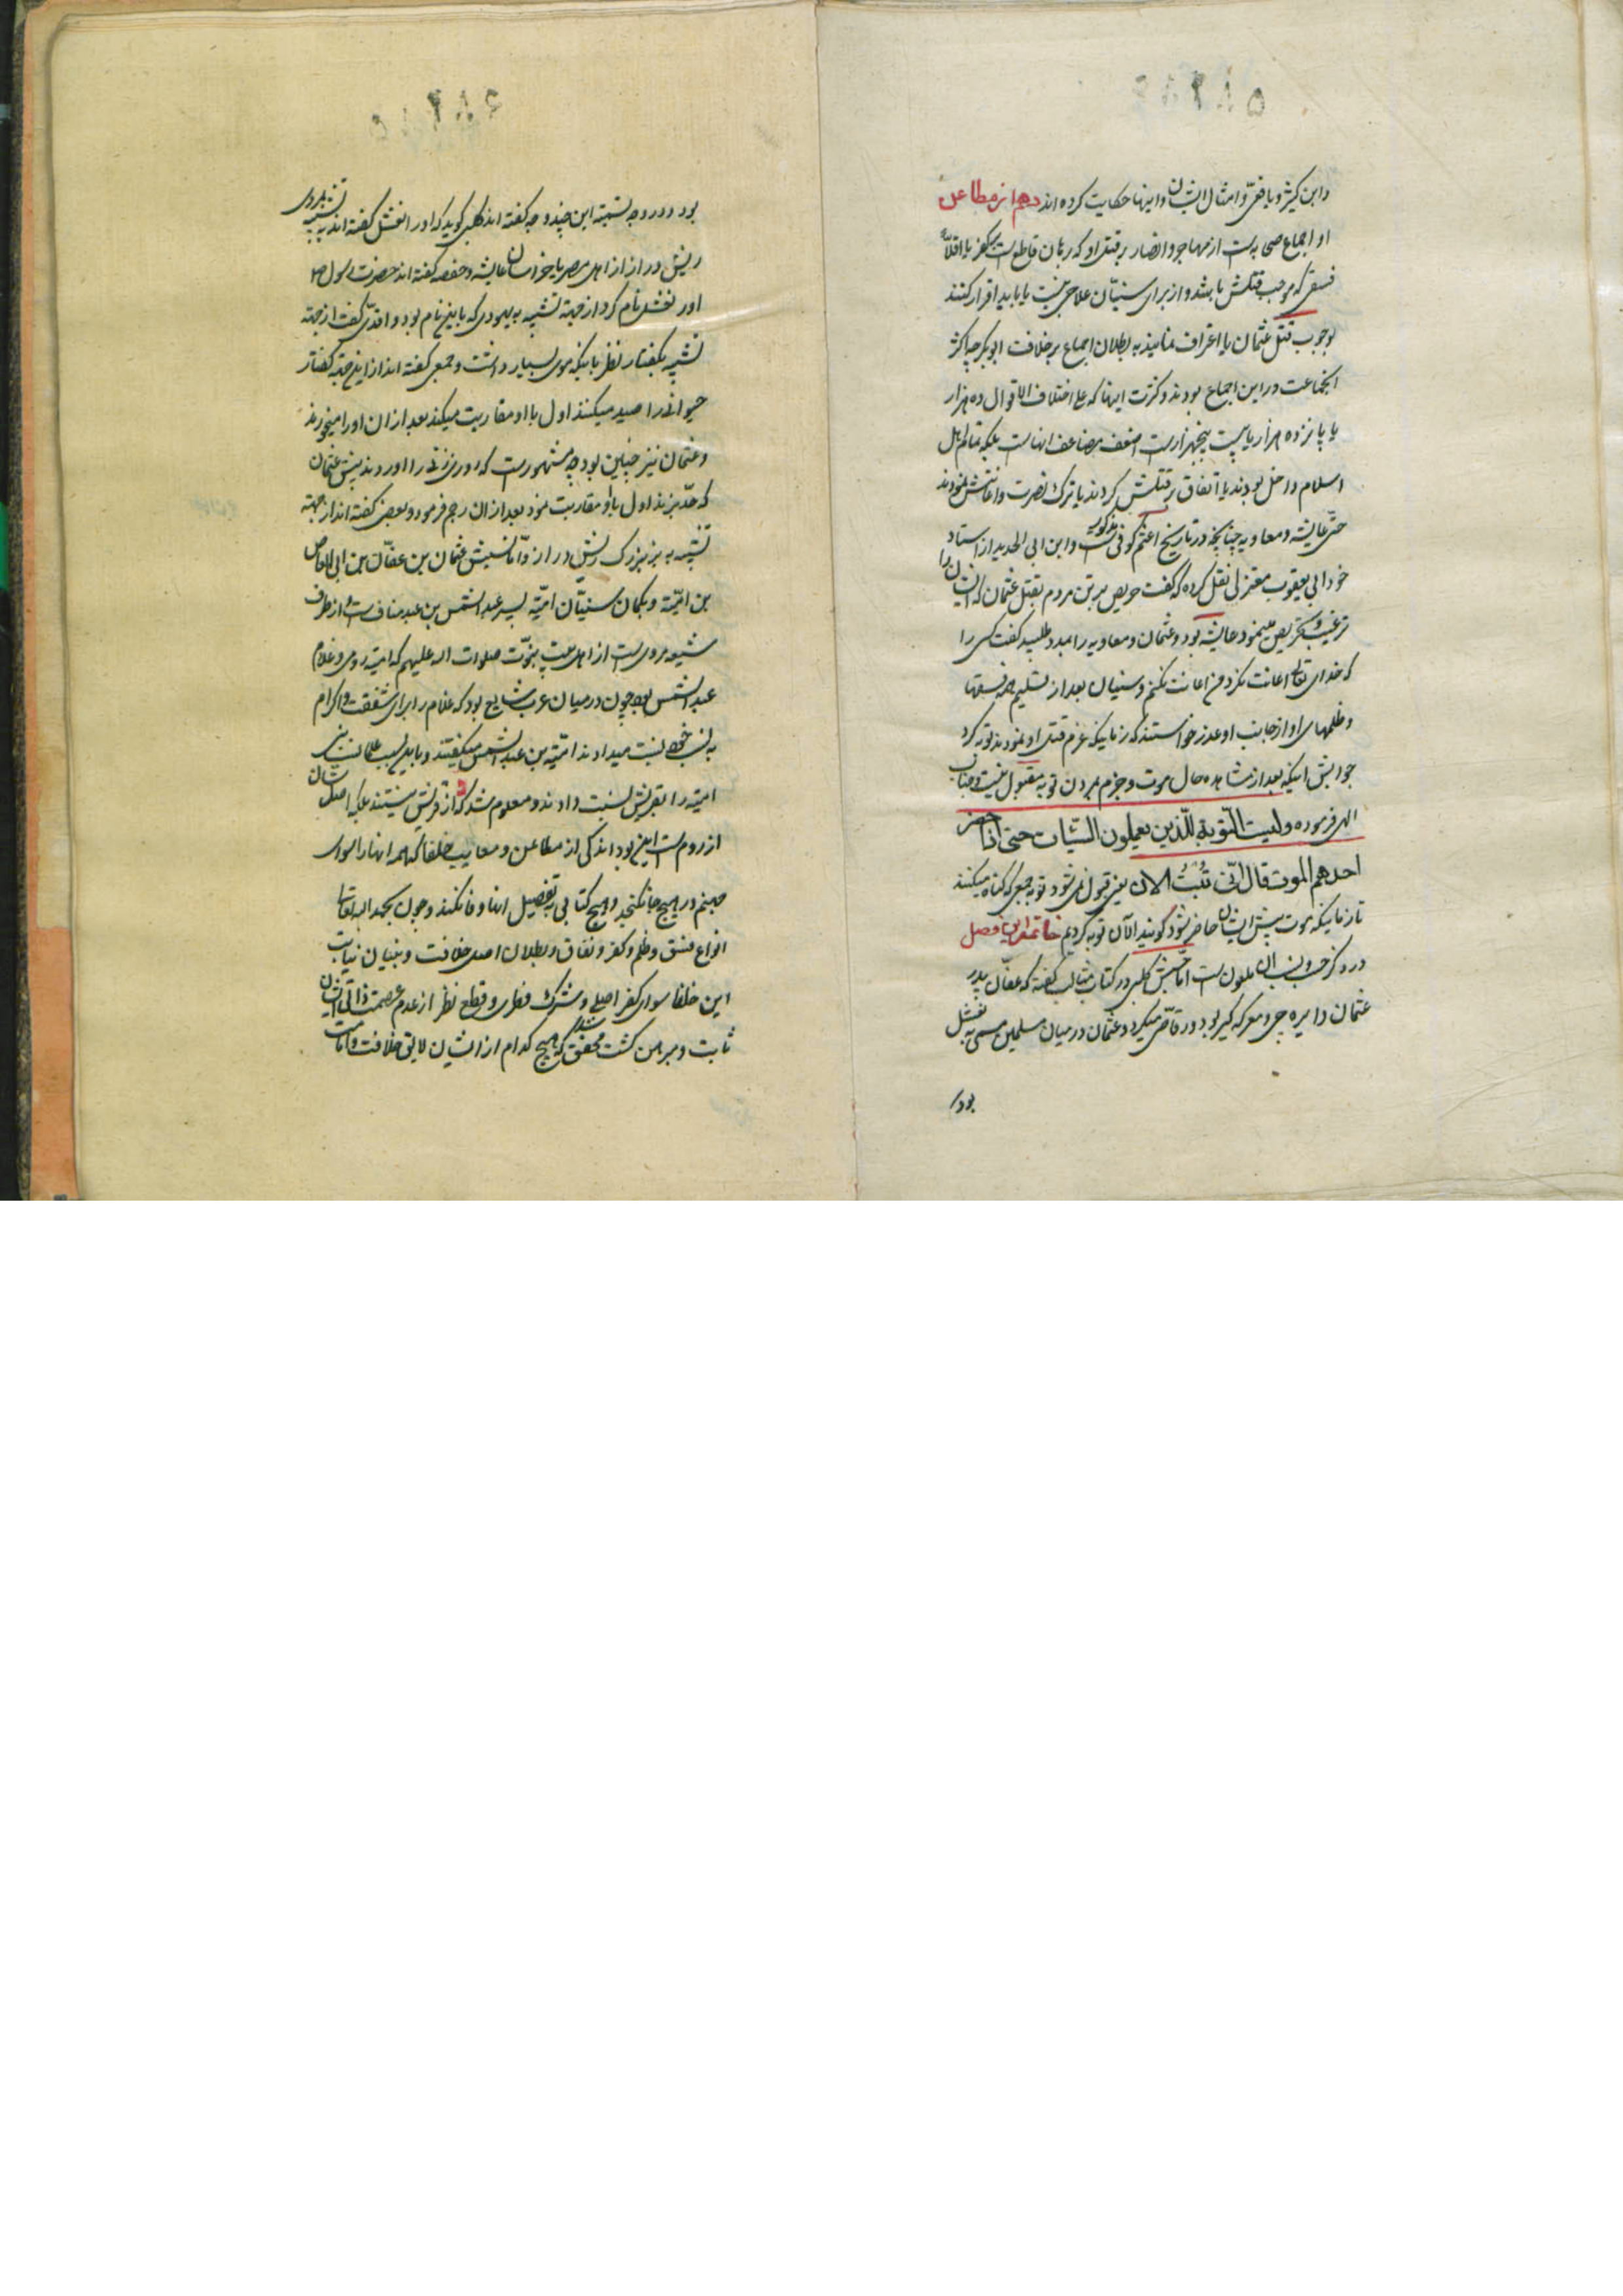 ۵۸۲۸۵
وابن کثیر و یافعی و امثال ایشان و اینها حکایت کرده اند دهم از مطاعن
او اجماع صحابه است از مهاجر و انصار بر قتل او که برهان قاطع است بر کفر یا اقلاً
فسقی که موجب قتلش باشد و از برای سنیّان علاجی نیست یا باید اقرار کنند
بوجوب قتل عثمان یا اعتراف نمایند به بطلان اجماع بر خلافت ابوبکر چه اکثر
انجماعت در این اجماع بودند و کثرت اینها که علی اختلاف الاقوال ده هزار
یا پانزده هزار یا بیست پنجهزار است اضعف مضاعف انهاست بلکه تمام اهل
اسلام داخل بودند یا اتفاق بر قتلش کردند یا ترک نصرت و اعانتش نمودند
حتّی عایشه و معاویه چنانچه در تاریخ اعثم کوفی مذکور است و ابن ابی الحدید از استاد
خود ابی یعقوب معتزلی نقل کرده که گفت حریص ترین مردم بقتل عثمان که ایشان را
ترغیب و تحریص مینمود عایشه بود و عثمان و معاویه را بمدد طلبید گفت کسی را
که خدای تعالی اعانت نکرد من اعانت نکنم و سنیان بعد از تسلیم همه فسقها
و ظلمهای او از جانب او عذر خواستند که زمانیکه عزم قتل او نمودند توبه کرد
جوابش اینکه بعد از مشاهده حال موت و جزم بمردن توبه مقبول نیست و جناب
الهی فرموده ولیست التوبة للّذین یعملون السّیّات حتی اذا حضر
احدهم الموت قال انّی تبتُ الان یعنی قبول نمی شود توبه جمعی که گناه میکنند
تا زمانیکه موت پیش ایشان حاضر شود گویند الآن توبه کردیم خاتمه این فصل
در ذکر حسب و نسب ان ملعون است امّا حسبش کلبی در کتاب مثالب گفته که عفّان پدر
عثمان دایره چی و معرکه گیر بود و رقاصی میکرد و عثمان در میان مسلمین مسمی به نعثل
بود
۵۸۲۸۶
بود و در وجه تسمیه این چند وجه گفته اند کلبی گوید که او را نعثل گفته اند به تشبیه بمردی
ریش دراز از اهل مصر یا خراسان عایشه و حفصه گفته اند حضرت رسول ص
او را نعثل نام کرد از جهة تشبیه به یهودی که باین نام بود واقدی گفت از جهة
تشبیه بکفتار نظر باینکه موی بسیار داشت و جمعی گفته اند از این جهة کفتار
حیوانی را صید میکند اول با او مقاربت میکند بعد از ان او را میخورد
و عثمان نیز چنین بود چه مشهور است که روزی زنی را اوردند پیش عثمان
که حدّ بزند اول باو مقاربت نمود بعد از ان رجم فرمود و بعضی گفته اند از جهة
تشبیه به بز بزرک ریش دراز و امّا نسبش عثمان بن عفّان بن ابی العاص
بن امیّه و بکمان سنیّان امیّه پسر عبد الشمس بن عبد مناف است و از طرف
شیعه مروی است از اهل بیت نبوّت صلوات اله علیهم که امیّه رومی و غلام
عبد الشمس بود چون در میان عرب شایع بود که غلام را برای شفقت و اکرام
به نسب خود نسبت میدادند امیّه بن عبد الشمس میگفتند و باین سبب علمای نسب بنی
امیّه را بقریش نسبت دادند و معلوم شد که از قریش نیستند بلکه اصلشان
از روم است این بود اندکی از مطاعن و معایب خلفا که همه انها را سوای
جهنم در هیچ جا نکنجد و هیچ کتابی به تفصیل انها وفا نکند و چون بحمد اله تعالی
انواع فسق و ظلم و کفر و نفاق و بطلان اصل خلافت و بنیان نیابت
این خلفا سوای کفر اصلی و شرک فطری و قطع نظر از عدم عصمت ذاتی ایشان
ثابت و مبرهن گشت محقق شد که هیچ کدام از ایشان لایق خلافت و امامت